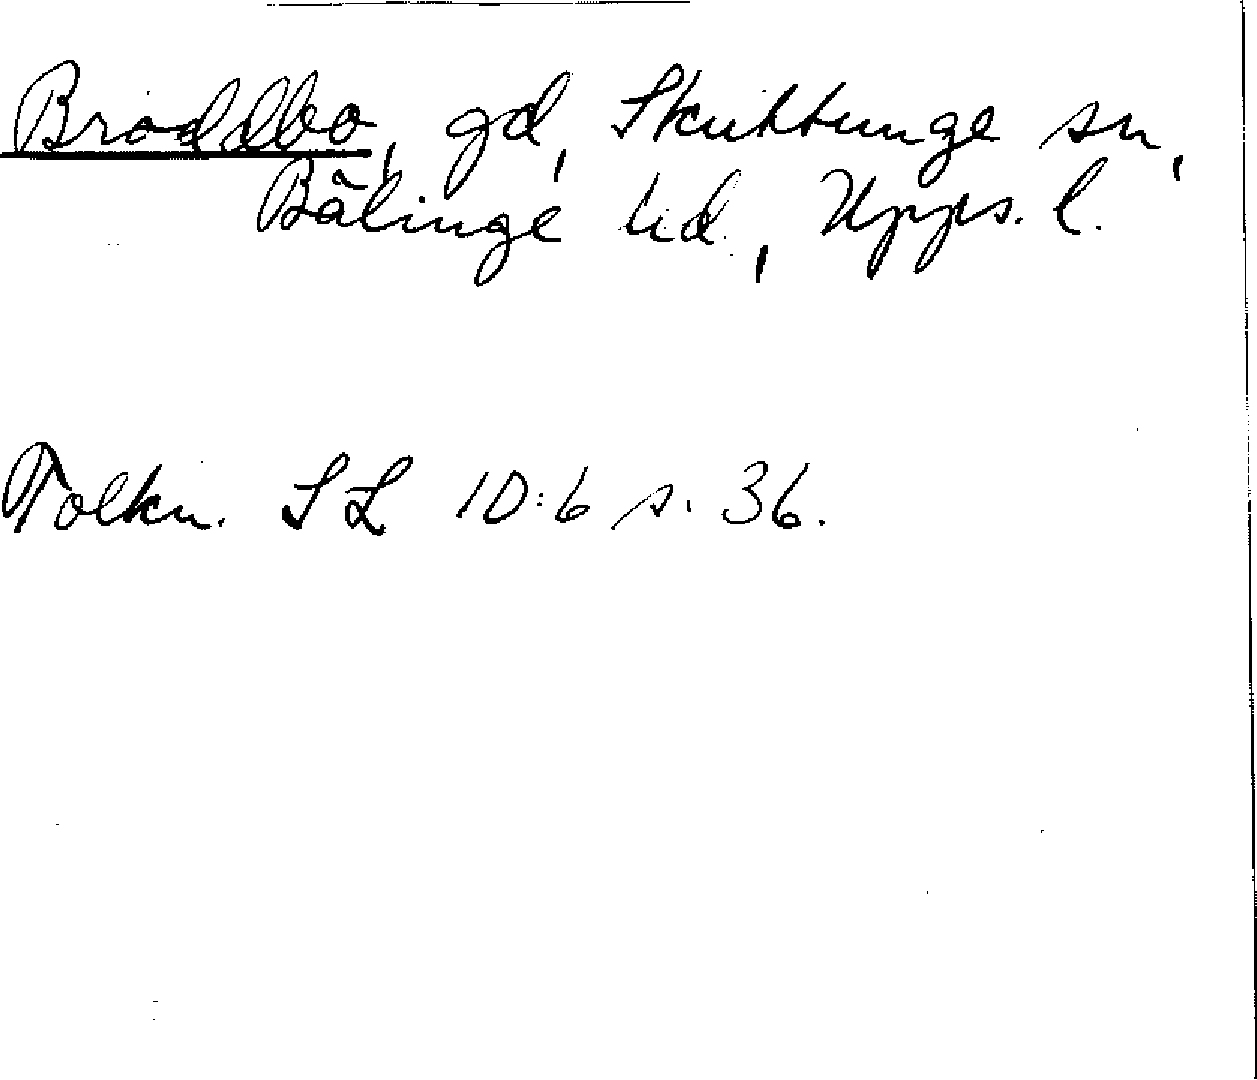 Broddbo, gd, Skuttunge sn,
Bälinge hd., Upps. l.
Tolkn. SL 10:6 s. 36.